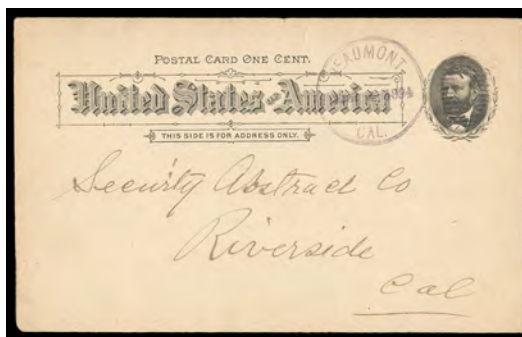 POSTAL CARD ONE CENT.
United States of America
THIS SIDE IS FOR ADDRESS ONLY.
BEAUMONT
CAL.
Security Abstract Co
Riverside
Cal